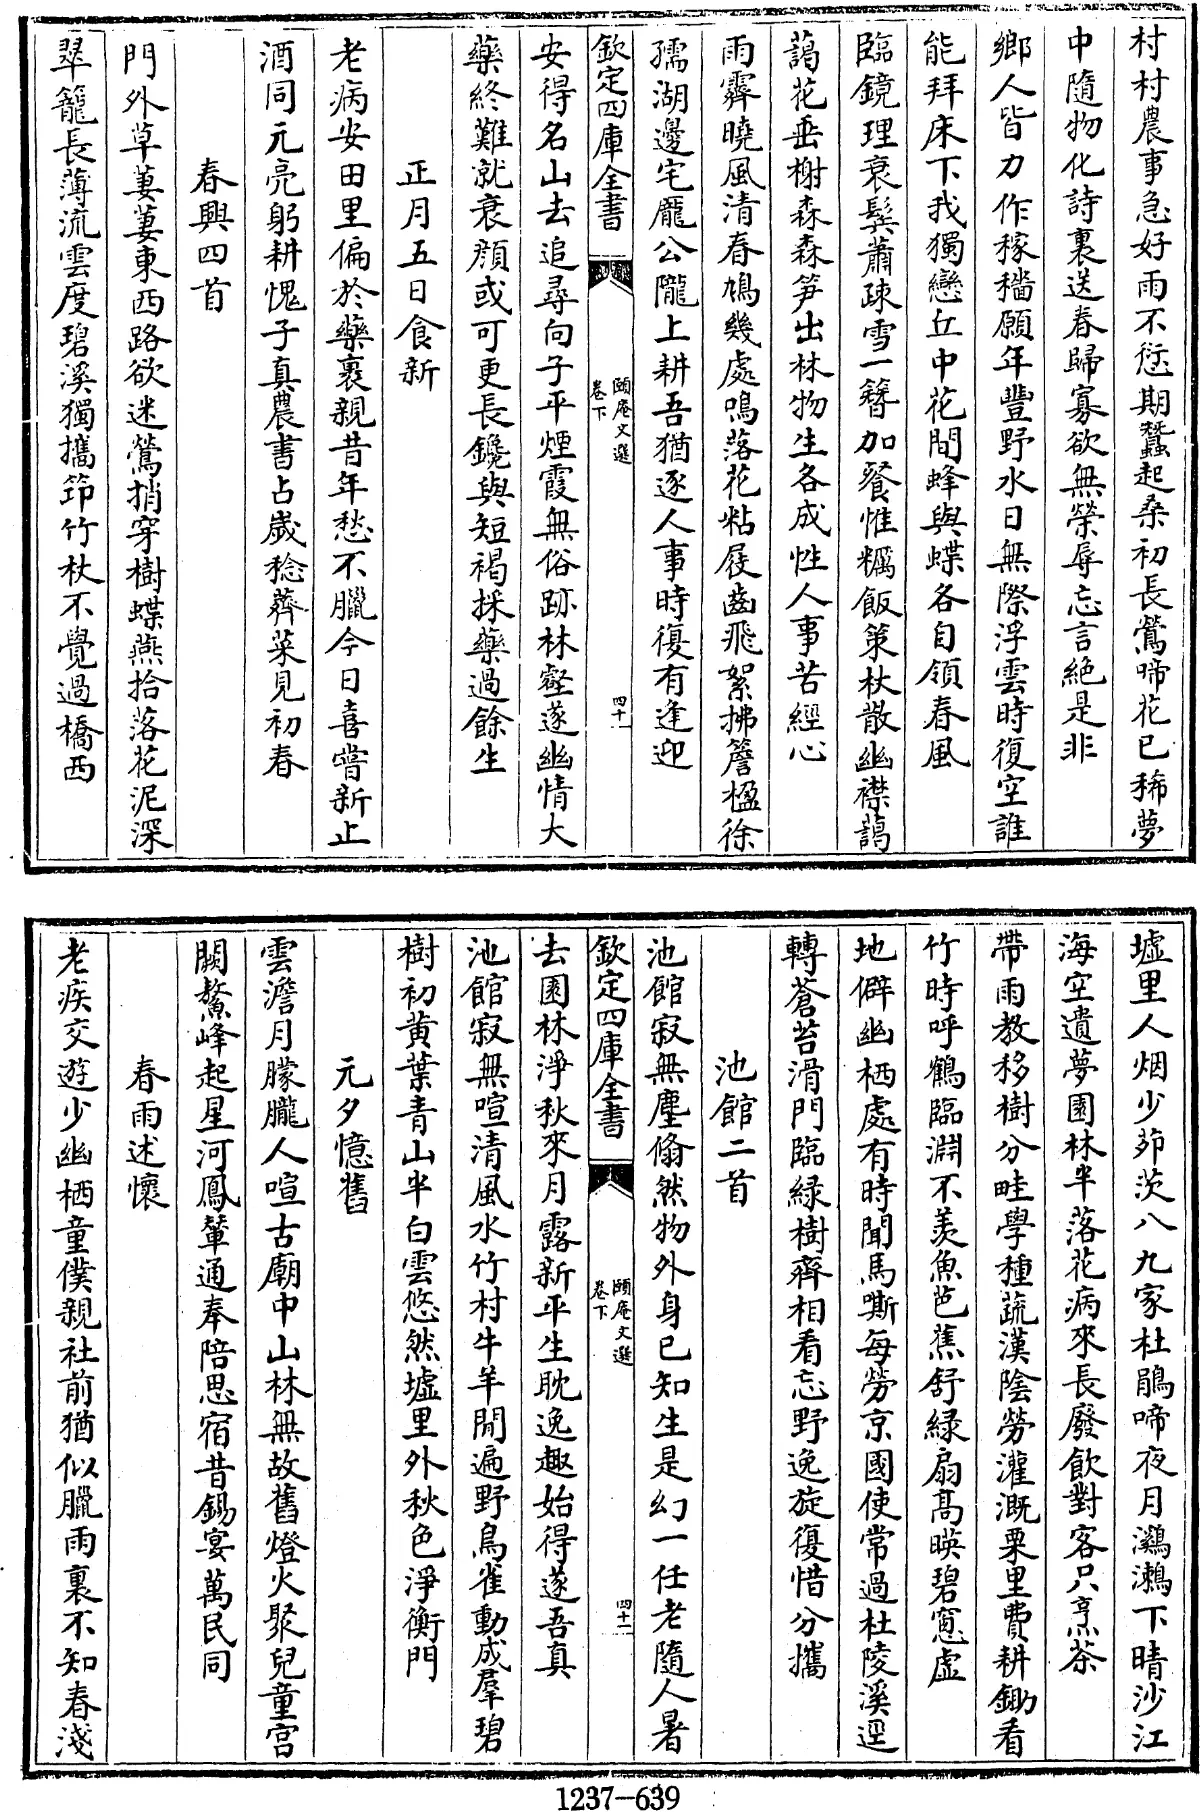 村村農事急好雨不愆期蠶起桑初長鶯啼花已稀夢
中隨物化詩裏送春歸寡欲無榮辱忘言絶是非
鄉人皆力作稼穡願年豐野水日無際浮雲時復空誰
能拜床下我獨戀丘中花間蜂與蝶各自領春風
臨鏡理衰鬓蕭疎雪一簪加餐惟糲飯策杖散幽襟藹
藹花垂榭森森笋出林物生各成性人事苦經心
雨霽曉風清春鳩幾處鳴落花粘屐齒飛絮拂簷楹徐
孺湖邊宅龎公隴上耕吾猶逐人事時復有逢迎
欽定四庫全書
頤庵文選
卷下
四十一
安得名山去追尋向子平煙霞無俗跡林壑遂幽情大
藥終難就衰顔或可更長鑱與短褐採藥過餘生
正月五日食新
老病安田里偏於藥裹親昔年愁不臘今日喜嘗新止
酒同元亮躬耕愧子真農書占歲稔薺菜見初春
春興四首
門外草萋萋東西路欲迷鶯捎穿樹蝶燕拾落花泥深
翠籠長薄流雲度碧溪獨攜筇竹杖不覺過橋西
墟里人烟少茆茨八九家杜鵑啼夜月鸂鶒下晴沙江
海空遺夢園林半落花病來長廢飲對客只烹茶
帶雨教移樹分畦學種蔬漢陰勞灌溉栗里費耕鋤看
竹時呼鶴臨淵不羨魚芭蕉舒緑扇高暎碧窻虚
地僻幽栖處有時聞馬嘶每勞京國使常過杜陵溪逕
轉蒼苔滑門臨緑樹齊相看忘野逸旋復惜分攜
池館二首
池館寂無塵翛然物外身已知生是幻一任老隨人暑
欽定四庫全書
頤庵文選
卷下
四十二
去園林淨秋來月露新平生耽逸趣始得遂吾真
池館寂無喧清風水竹村牛羊閒遍野鳥雀動成羣碧
樹初黄葉青山半白雲悠然墟里外秋色淨衡門
元夕憶舊
雲澹月朦朧人喧古廟中山林無故舊燈火聚兒童宫
闕鰲峰起星河鳳輦通奉陪思宿昔錫宴萬民同
春雨述懷
老疾交遊少幽栖童僕親社前猶似臘雨裏不知春淺
1237—639